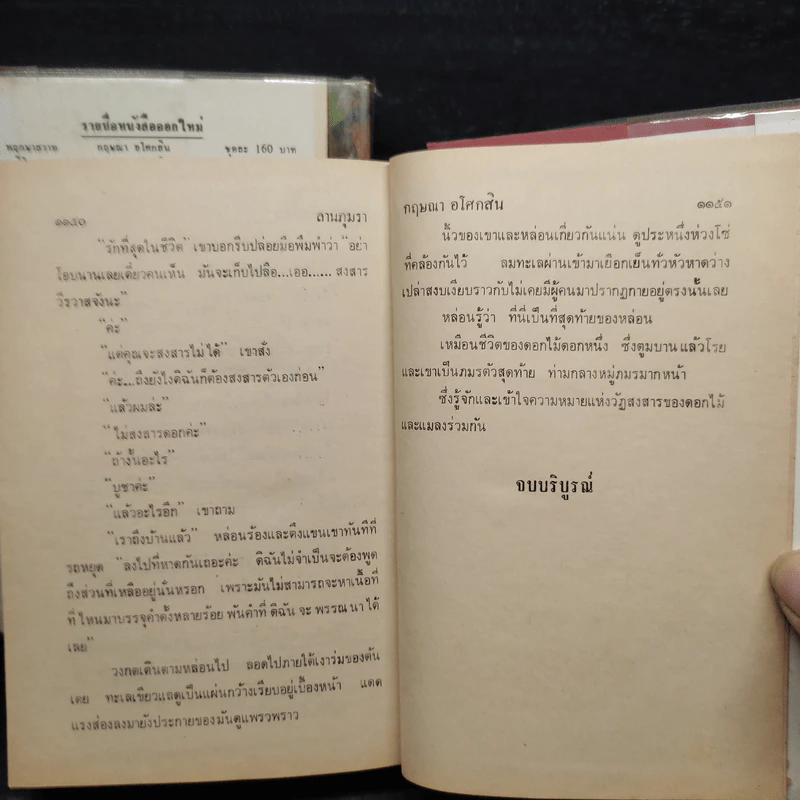 รายชื่อหนังสือออกใหม่
พฤกษาสวาท กฤษณา อโศกสิน ชุดละ 160 บาท
๑๑๕๐ ลานภุมรา
“รักที่สุดในชีวิต” เขาบอกรีบปล่อยมือพึมพำว่า “อย่า
โอบนานเลยเดี๋ยวคนเห็น มันจะเก็บไปลือ...เออ...... สงสาร
วีรวาสจังนะ”
“ค่ะ”
“แต่คุณจะสงสารไม่ได้” เขาสั่ง
“ค่ะ...ถึงยังไงดิฉันก็ต้องสงสารตัวเองก่อน”
“แล้วผมล่ะ”
“ไม่สงสารดอกค่ะ”
“ถ้างั้นอะไร”
“บูชาค่ะ”
“แล้วอะไรอีก” เขาถาม
“เราถึงบ้านแล้ว” หล่อนร้องและดึงแขนเขาทันทีที่
รถหยุด “ลงไปที่หาดกันเถอะค่ะ ดิฉันไม่จำเป็นจะต้องพูด
ถึงส่วนที่เหลืออยู่นั่นหรอก เพราะมันไม่สามารถจะหาเนื้อที่
ที่ไหนมาบรรจุคำตั้งหลายร้อย พันคำที่ ดิฉัน จะ พรรณ นา ได้
เลย”
วงกตเดินตามหล่อนไป ลอดไปภายใต้เงาร่มของต้น
เตย ทะเลเขียวแลดูเป็นแผ่นกว้างเรียบอยู่เบื้องหน้า แดด
แรงส่องลงมายังประกายของมันดูแพรวพราว
กฤษณา อโศกสิน ๑๑๕๑
นิ้วของเขาและหล่อนเกี่ยวกันแน่น ดูประหนึ่งห่วงโซ่
ที่คล้องกันไว้ ลมทะเลผ่านเข้ามาเยือกเย็นทั่วหัวหาดว่าง
เปล่าสงบเงียบราวกับไม่เคยมีผู้คนมาปรากฏกายอยู่ตรงนั้นเลย
หล่อนรู้ว่า ที่นี่เป็นที่สุดท้ายของหล่อน
เหมือนชีวิตของดอกไม้ดอกหนึ่ง ซึ่งตูมบาน แล้วโรย
และเขาเป็นภมรตัวสุดท้าย ท่ามกลางหมู่ภมรมากหน้า
ซึ่งรู้จักและเข้าใจความหมายแห่งวัฏสงสารของดอกไม้
และแมลงร่วมกัน
จบบริบูรณ์